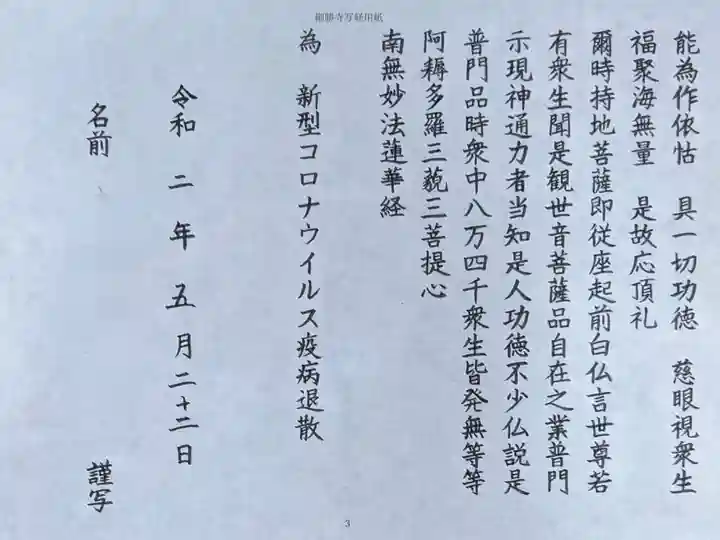 能為作依怙 具一切功徳 慈眼視衆生
福聚海無量 是故応頂礼
爾時持地菩薩即従座起前白仏言世尊若
有衆生聞是観世音菩薩品自在之業普門
示現神通力者当知是人功徳不少仏説是
普門品時衆中八万四千衆生皆発無等等
阿耨多羅三藐三菩提心
南無妙法蓮華経
為 新型コロナウイルス疫病退散
令和 二 年 五 月 二十二日
名前 謹写
3